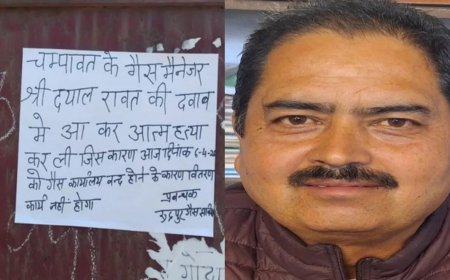 चम्पावत के गैस मैनेजर
श्री दयाल रावत की दवाब
मे आ कर आत्म हत्या
कर ली जिस कारण आज दिनांक 6-4-
को गैस कार्यालय बन्द होने के कारण वितरण
कार्य नही होगा
प्रबन्धक
गैस